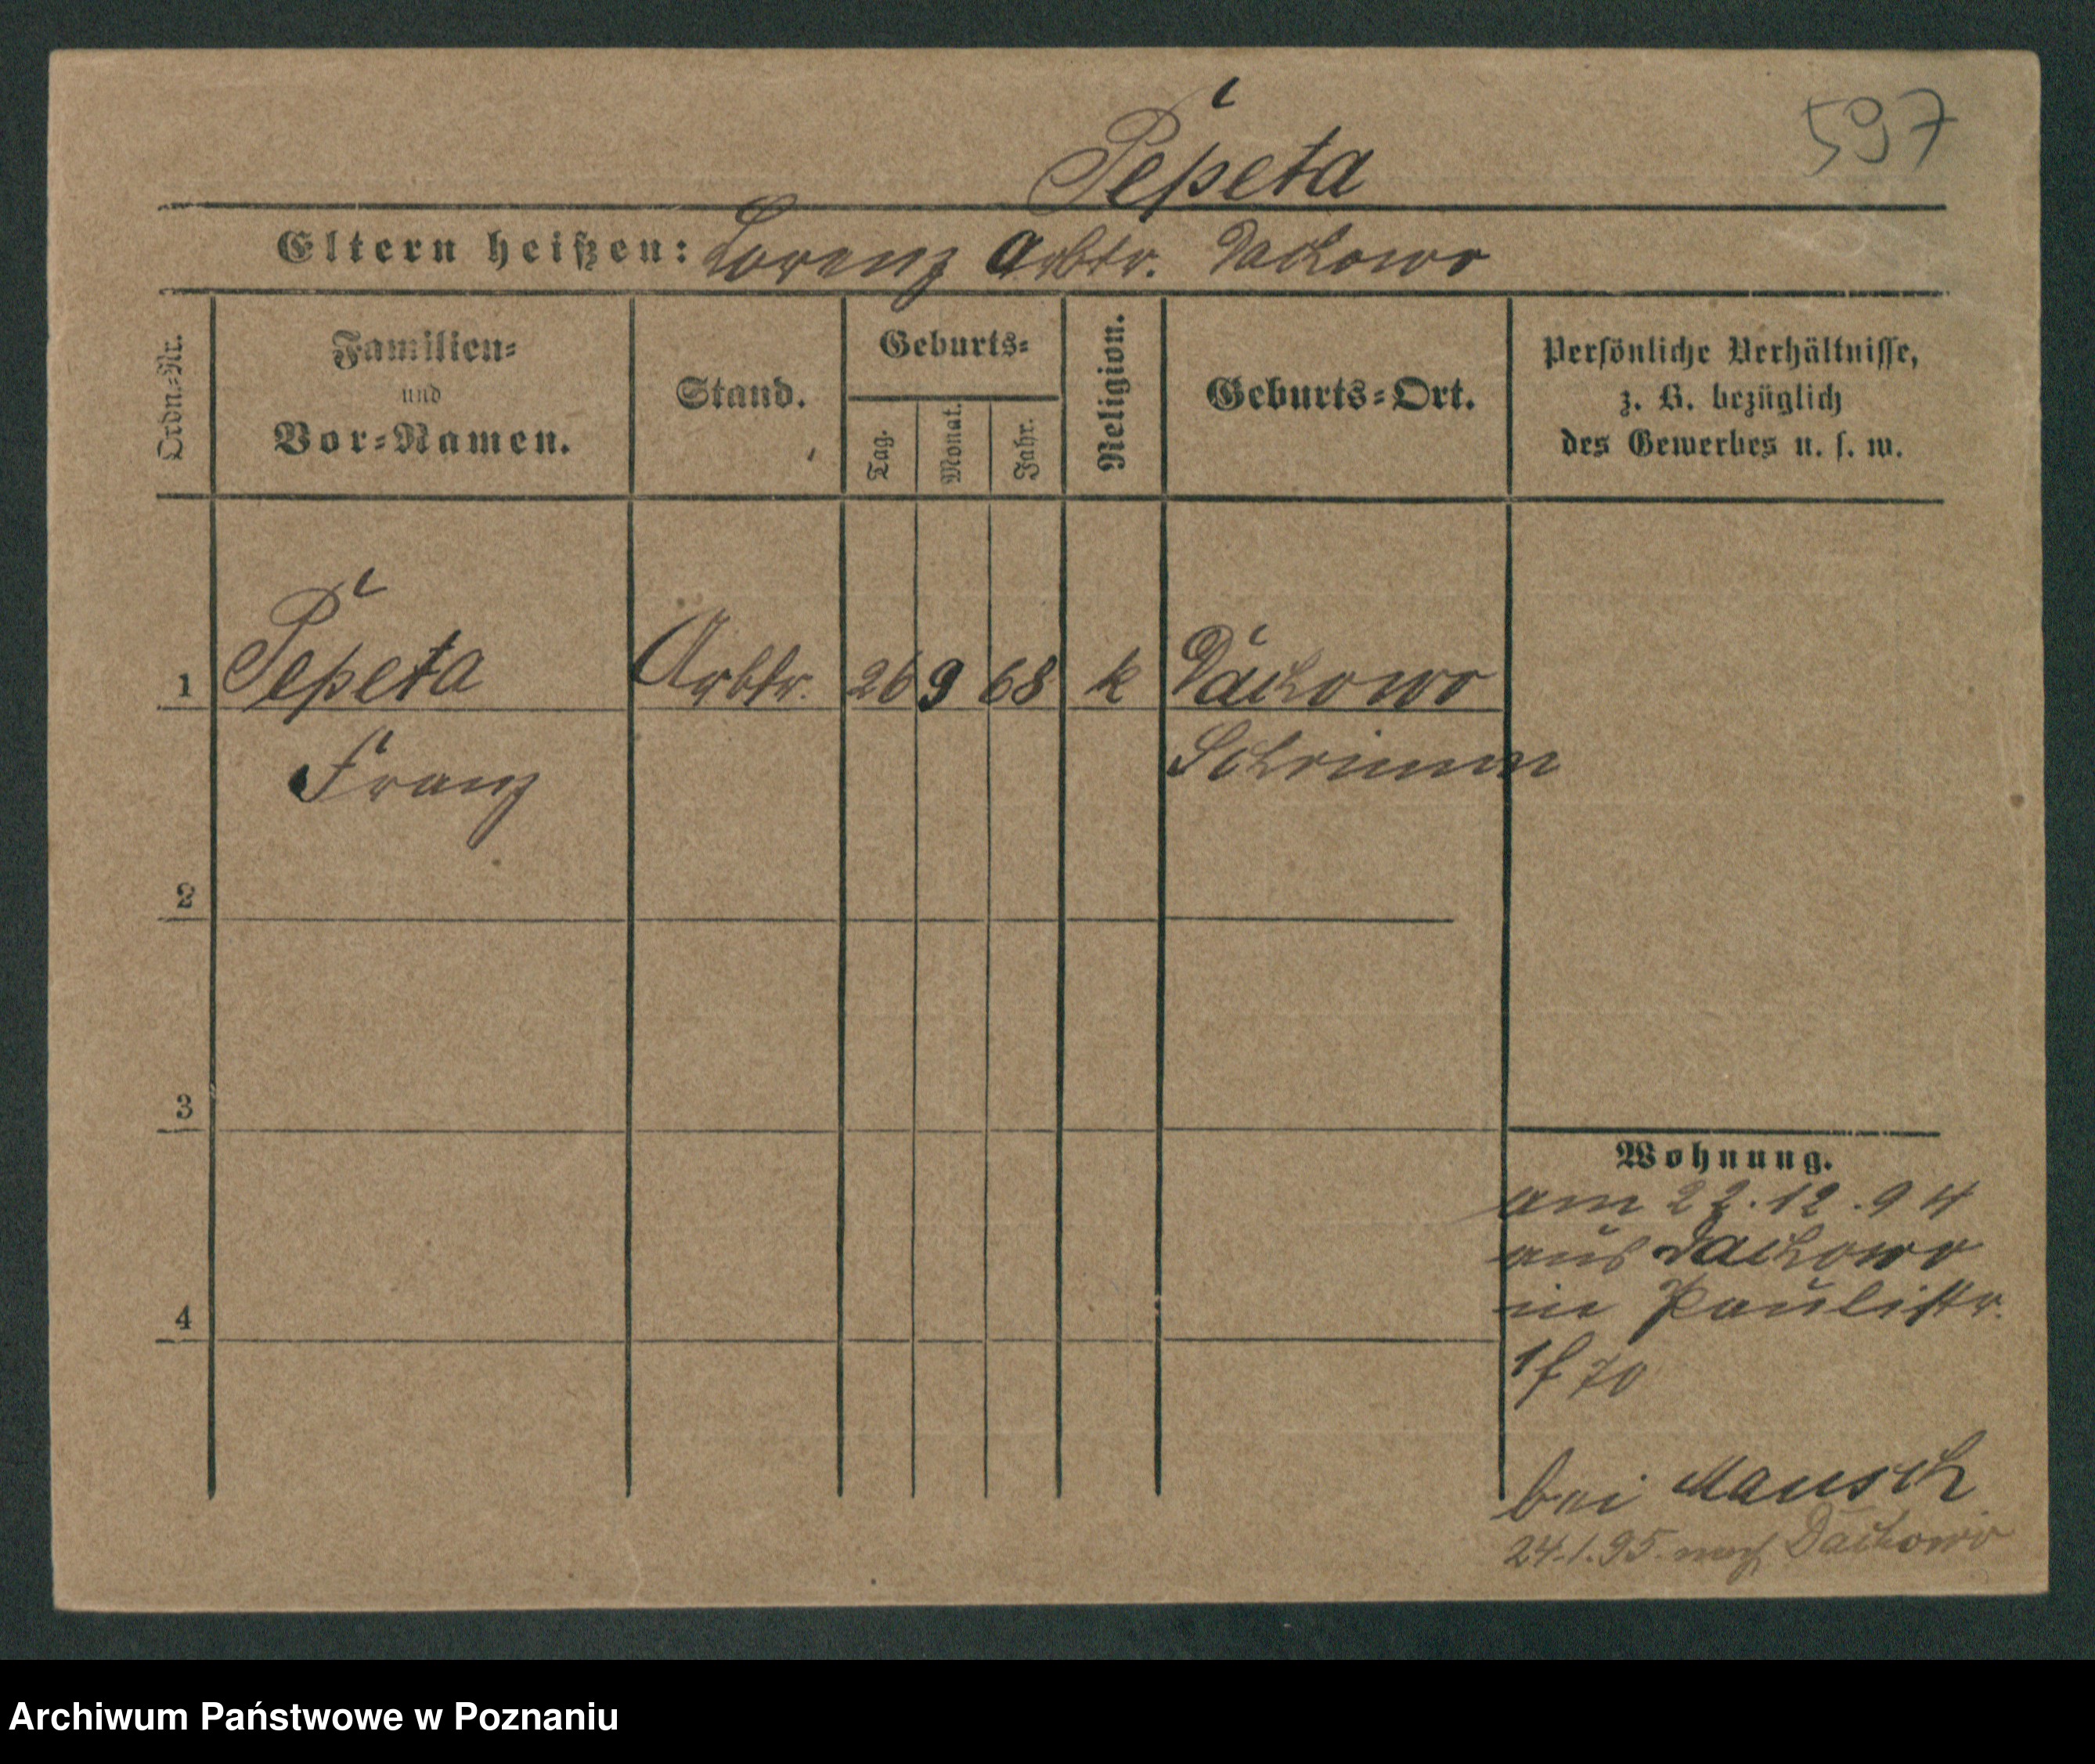 597
Pepeta
Eltern heißen: Lorenz Arbtr. Dachowo
Ordn.-Nr.
Familien-
und
Vor-Namen.
Stand.
Geburts-
Tag.
Monat.
Jahr.
Religion.
Geburts-Ort.
Persönliche Verhältnisse,
z. B. bezüglich
des Gewerbes u. s. w.
1 Pepeta Arbtr. 26 9 68 k Dachowo
Franz Schrimm
2
3
4
Wohnung.
am 22.12.94
aus Dachowo
in Paulistr.
70
bei Mausch
24.1.95. nach Dachowo
Archiwum Państwowe w Poznaniu